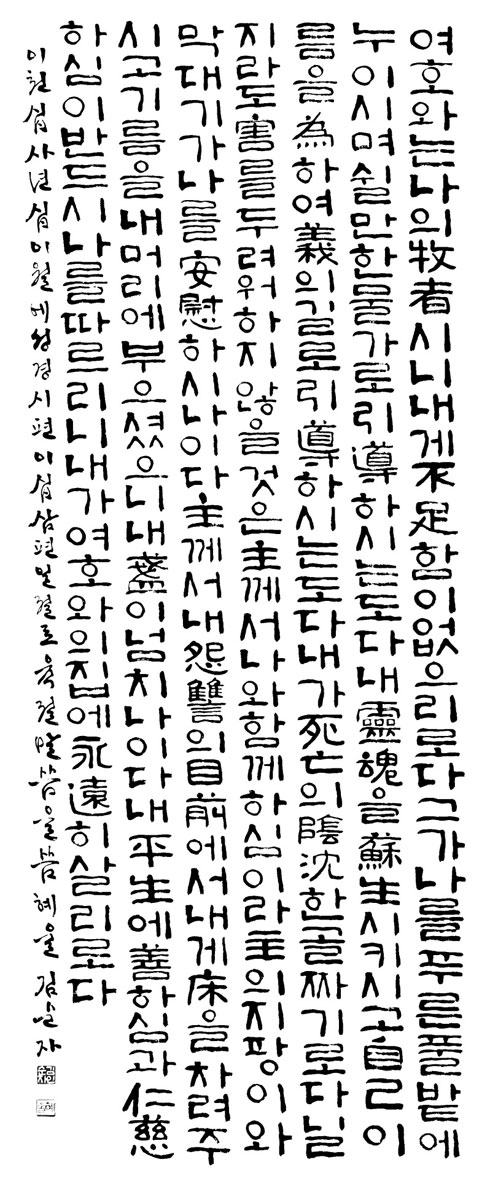 여호와는나의牧者시니내게不足함이없으리로다그가나를푸른풀밭에
누이시며쉴만한물가로引導하시는도다내靈魂을蘇生시키시고自己이
름을為하여義의길로引導하시는도다내가死亡의陰沈한골짜기로다닐
지라도害를두려워하지않을것은主께서나와함께하심이라主의지팡이와
막대기가나를安慰하시나이다主께서내怨讐의目前에서내게床을차려주
시고기름을내머리에부으셨으니내盞이넘치나이다내平生에善하심과仁慈
하심이반드시나를따르리니내가여호와의집에永遠히살리로다
이천십사년십이월에성경시편이십삼편일절로육절말씀을씀